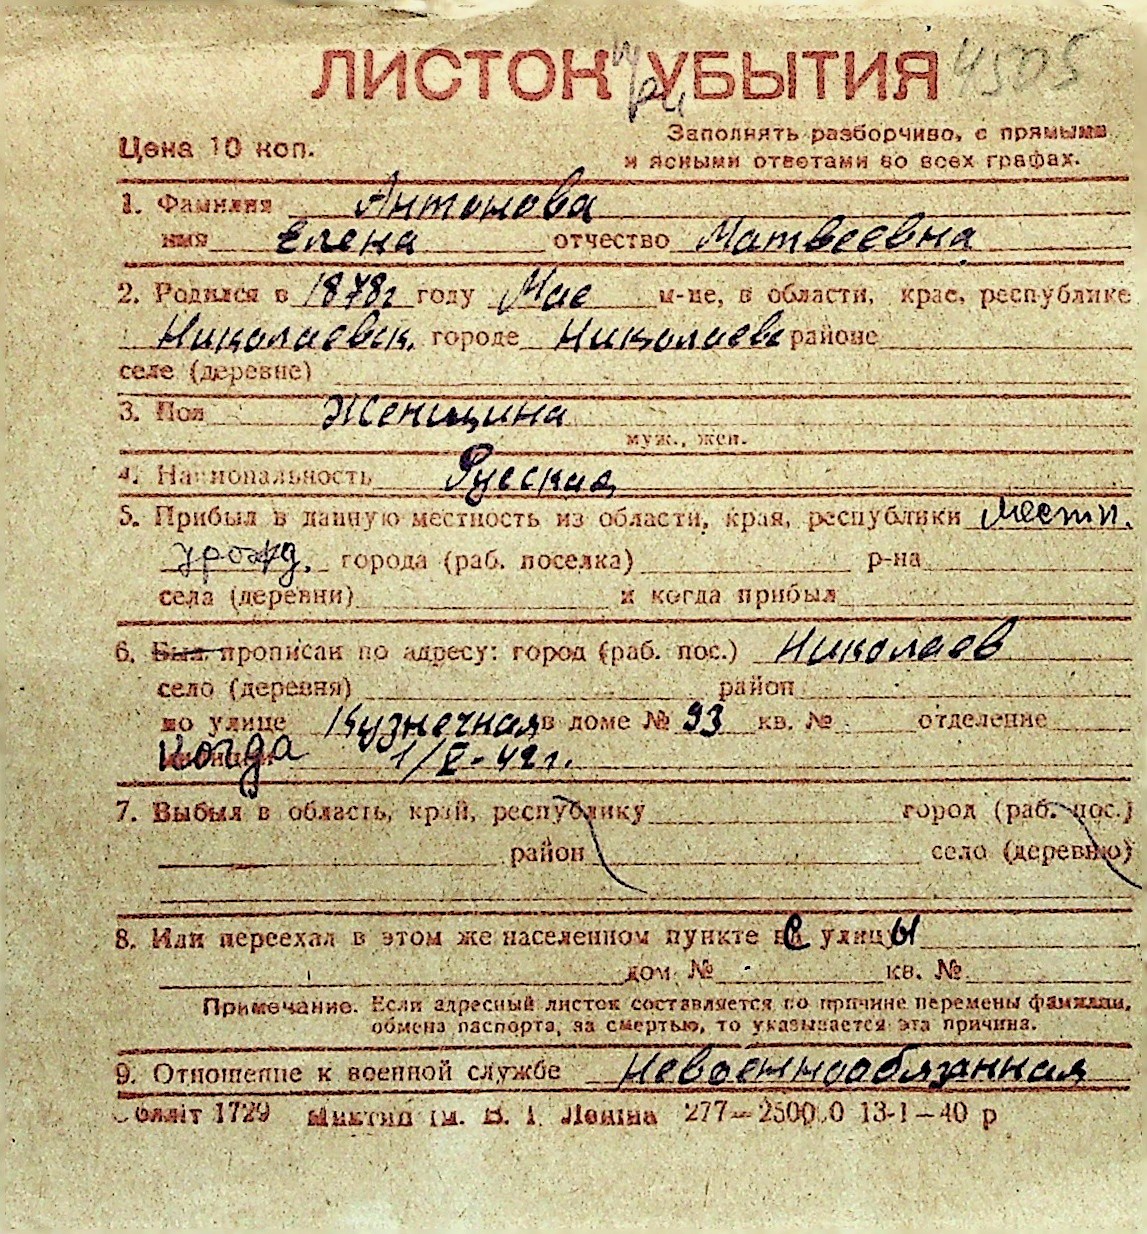 ЛИСТОК при УБЫТИЯ 4505
Цена 10 коп.
Заполнять разборчиво, с прямыми
и ясными ответами во всех графах.
1. Фамилия Антонова
имя Елена отчество Матвеевна
2. Родился в 1878г году Мае м-це, в области, крае, республике
Николаевск. городе Николаеве районе
селе (деревне)
3. Пол Женщина
муж., жен.
4. Национальность Русская
5. Прибыл в данную местность из области, края, республики Местн.
урожд. города (раб. поселка) р-на
села (деревни) и когда прибыл
6. Был прописан по адресу: город (раб. пос.) Николаев
село (деревня) район
по улице Кузнечная в доме № 93 кв. № отделение
Когда 1/V-42г.
7. Выбыл в область, край, республику город (раб. пос.)
район село (деревню)
8. Или переехал в этом же населенном пункте с улицы
дом № кв. №
Примечание. Если адресный листок составляется по причине перемены фамилии,
обмена паспорта, за смертью, то указывается эта причина.
9. Отношение к военной службе Невоеннообязанная
Облліт 1729 ім. В. І. Леніна 277— 13-1—40 р